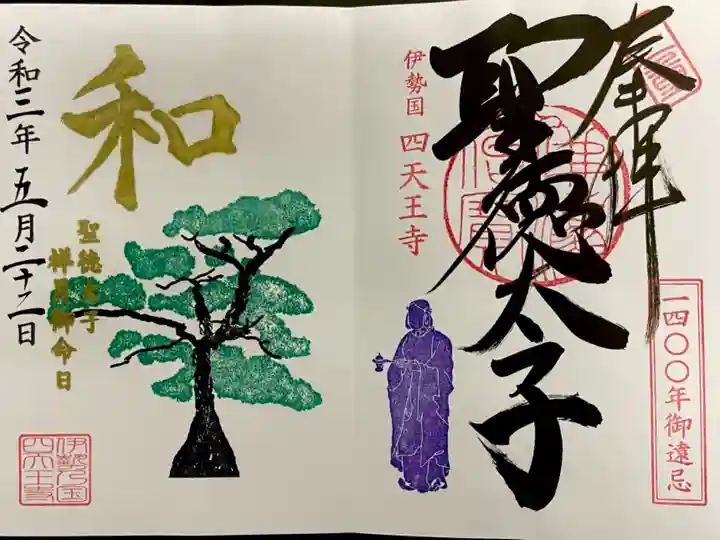 奉拝
聖徳太子
一四〇〇年御遠忌
伊勢国 四天王寺
和
聖徳太子
祥月御命日
令和三年五月二十二日
伊勢乃国
四天王寺